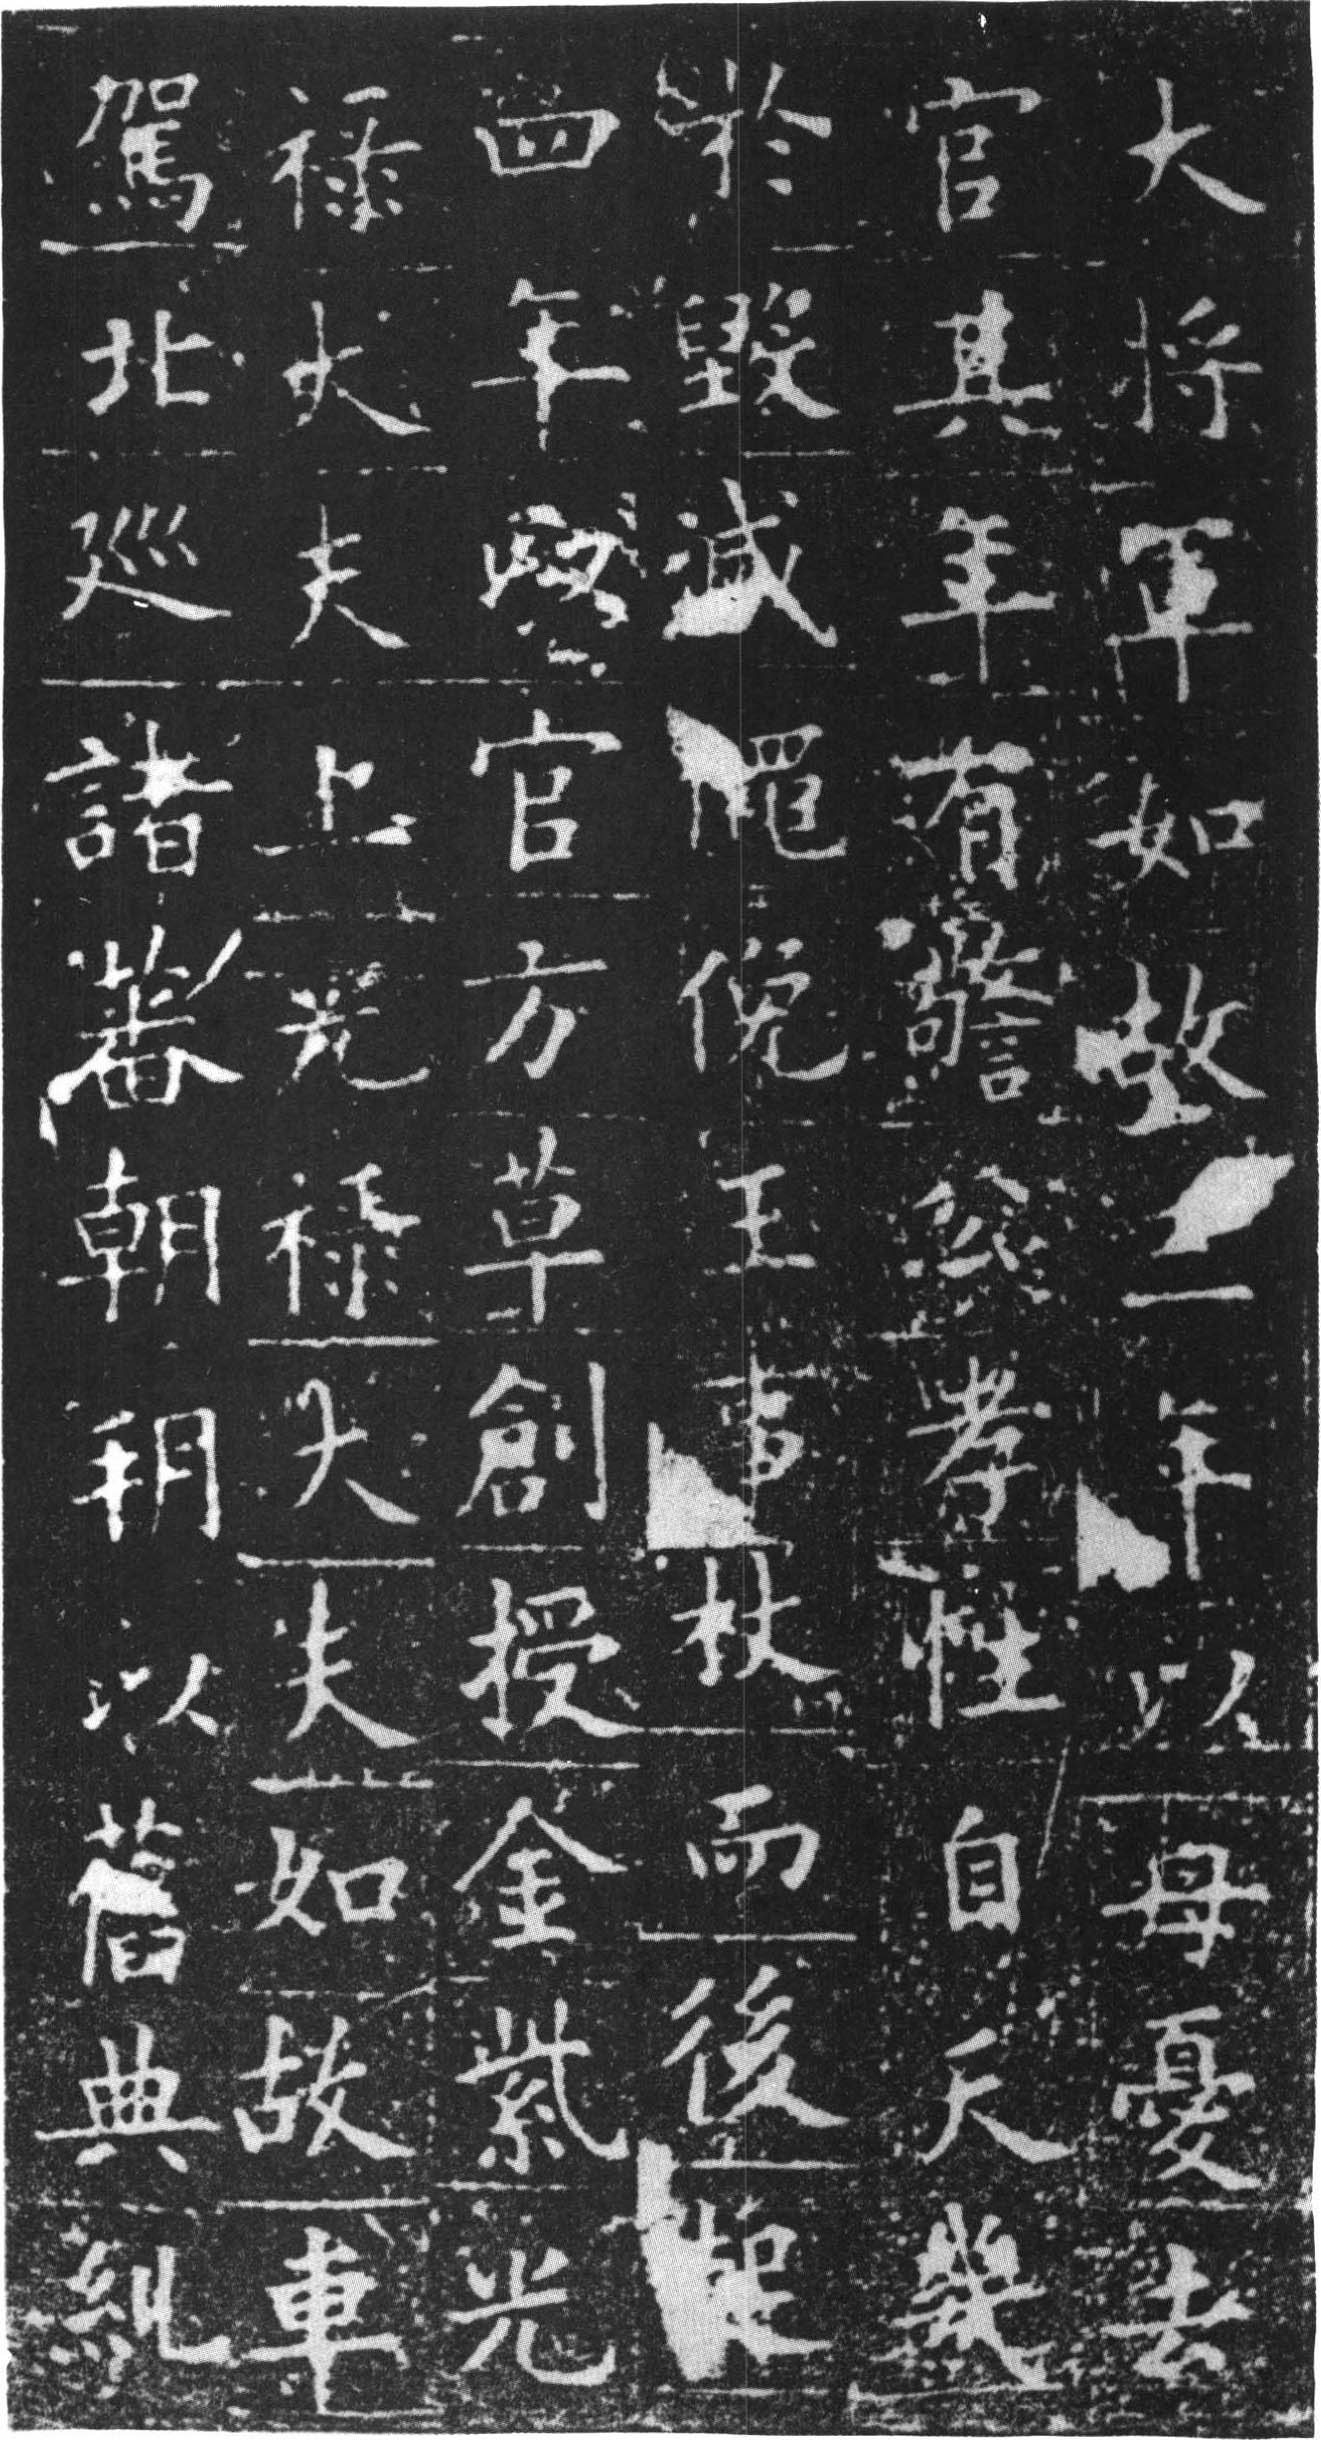 大将軍如故二年以母憂去
官其年有警公孝性自天幾
於毀滅黽俛王事杖而後起
四年官方草創授金紫光
祿大夫上光祿大夫如故車
駕北巡諸蕃朝朔以舊典糺